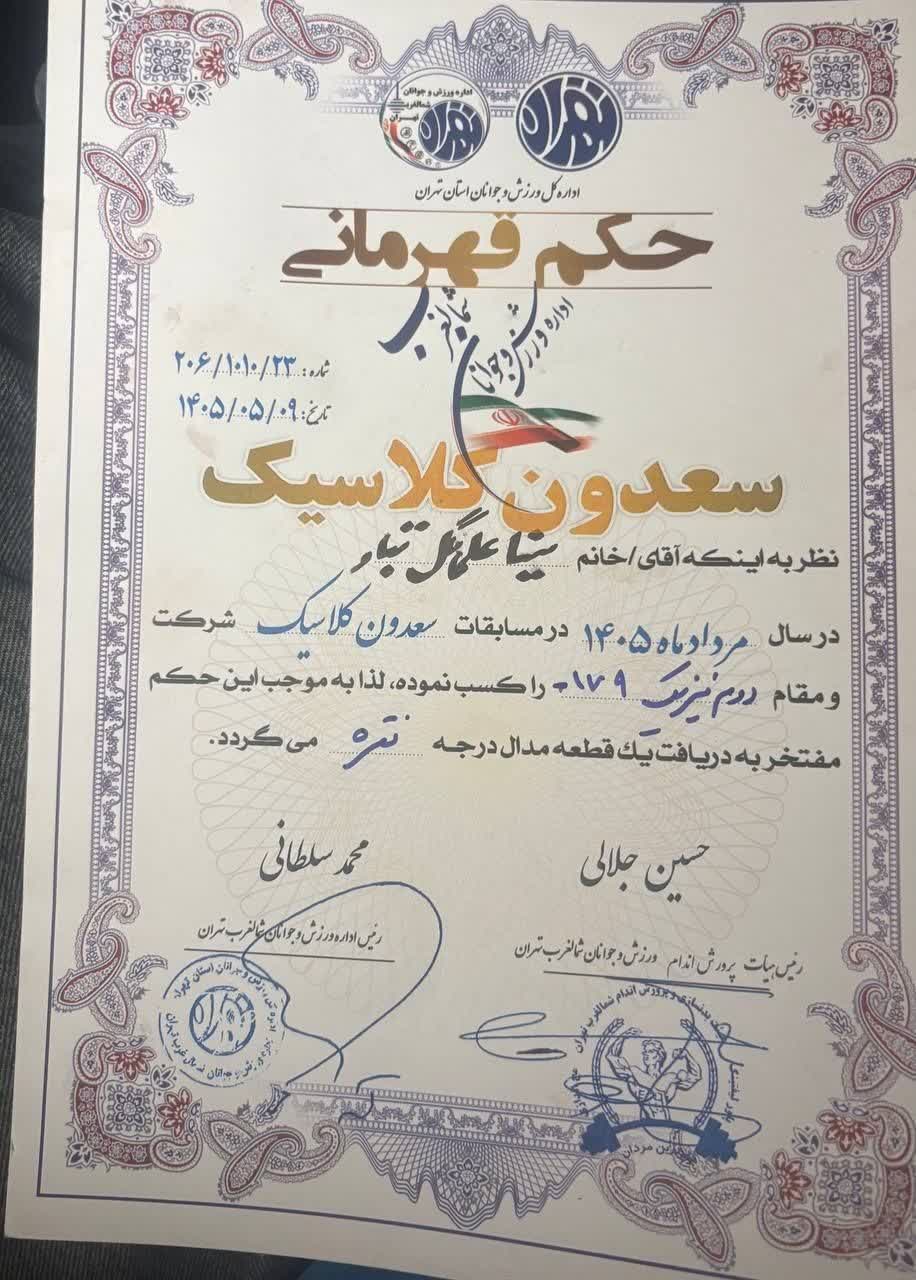 اداره ورزش و جوانان
شمالغرب
تهران
تهران
اداره کل ورزش و جوانان استان تهران
حکم قهرمانی
اداره ورزش و جوانان شمالغرب
شماره: ۲۰۶/۱۰۱۰/۲۳
تاریخ: ۱۴۰۵/۰۵/۰۹
سعدون کلاسیک
نظر به اینکه آقای/خانم سینا علی‌گل تبار
در سال مرداد ماه ۱۴۰۵ در مسابقات سعدون کلاسیک شرکت
و مقام دوم فیزیک ۱۷۹- را کسب نموده، لذا به موجب این حکم
مفتخر به دریافت یک قطعه مدال درجه نقره می گردد.
حسین جلالی
رئیس هیات پرورش اندام ورزش و جوانان شمالغرب تهران
محمد سلطانی
رئیس اداره ورزش و جوانان شمالغرب تهران
بدنسازی و پرورش اندام شمالغرب تهران